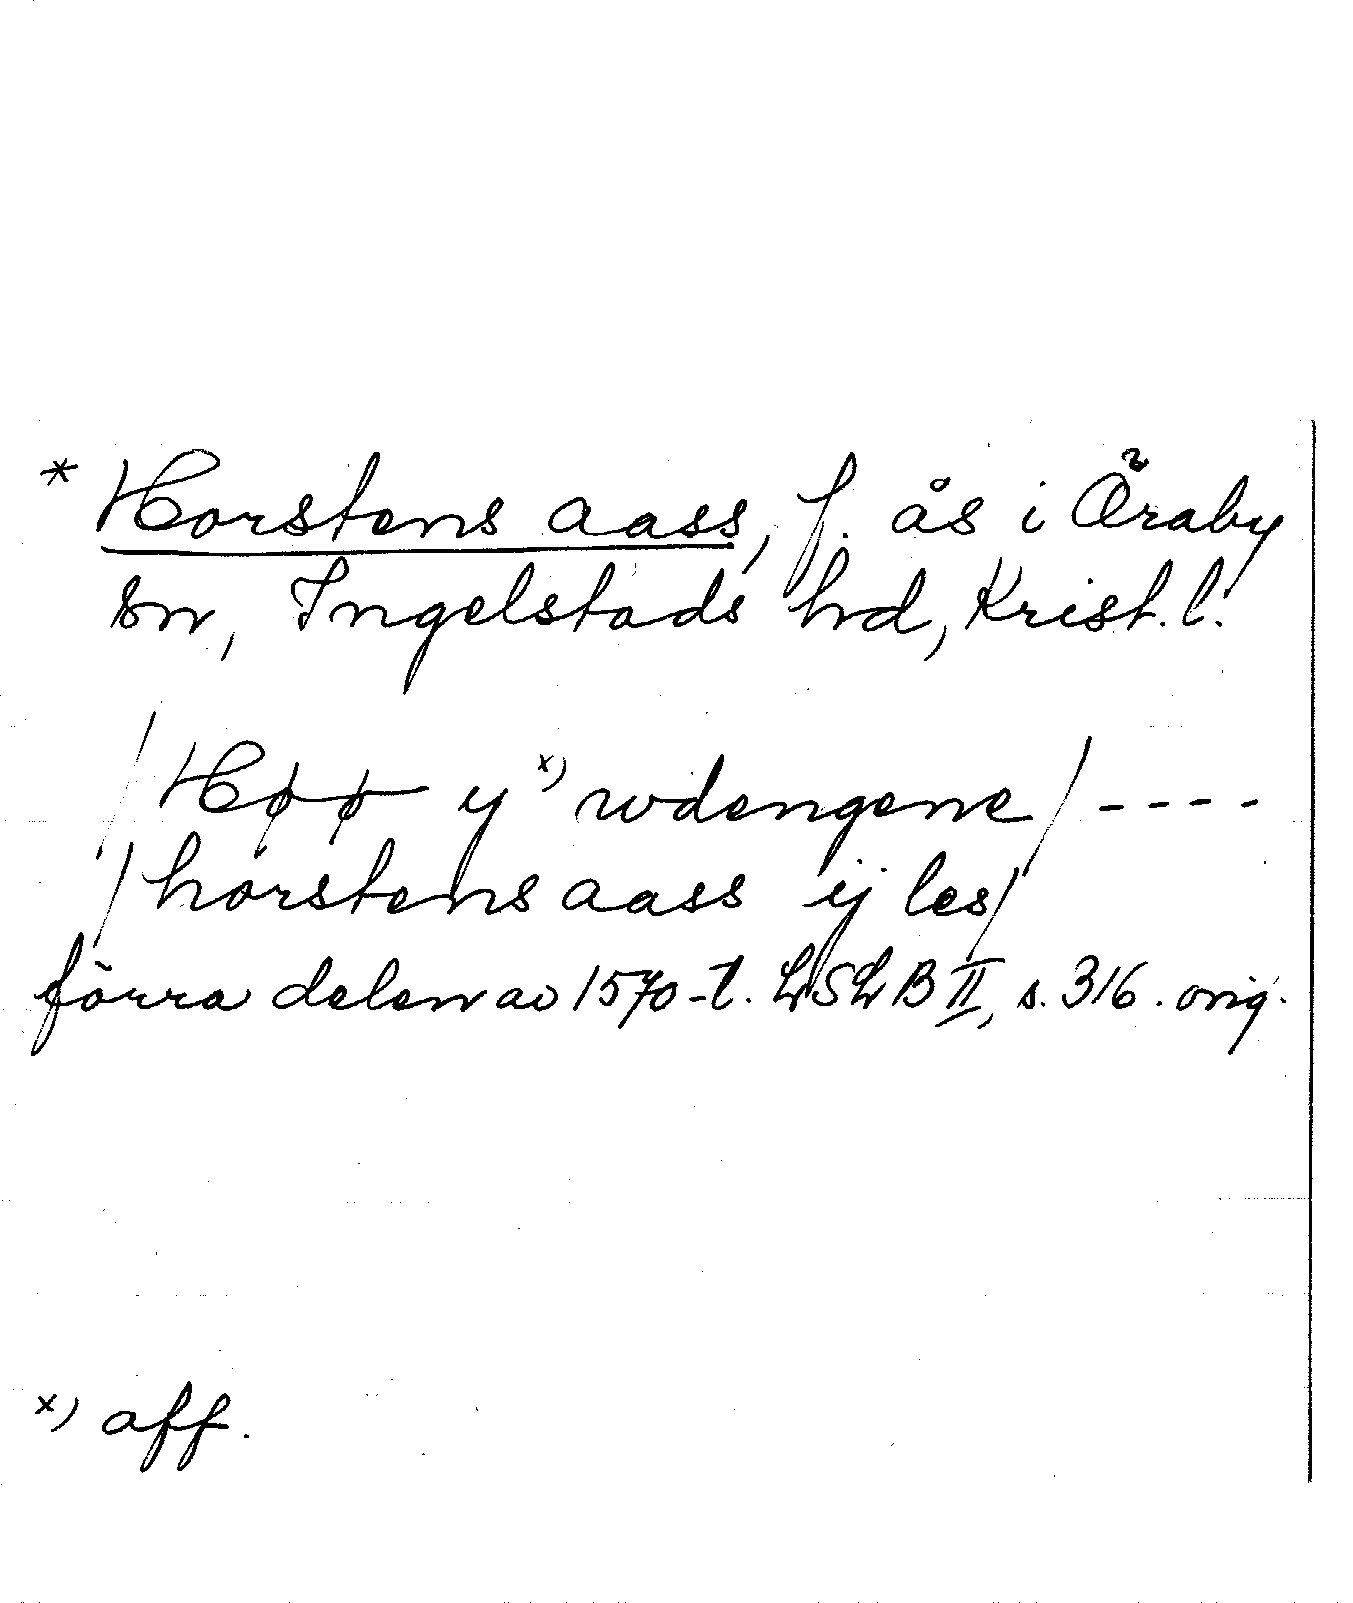 * Horstens aass, f. ås i Öraby
sn, Ingelstads hd, Krist. l.
/Høø y x) wdengene/ ----
/horstens aass ij les/
förra delen av 1570-t. LSLB II, s. 316. orig.
x) aff.